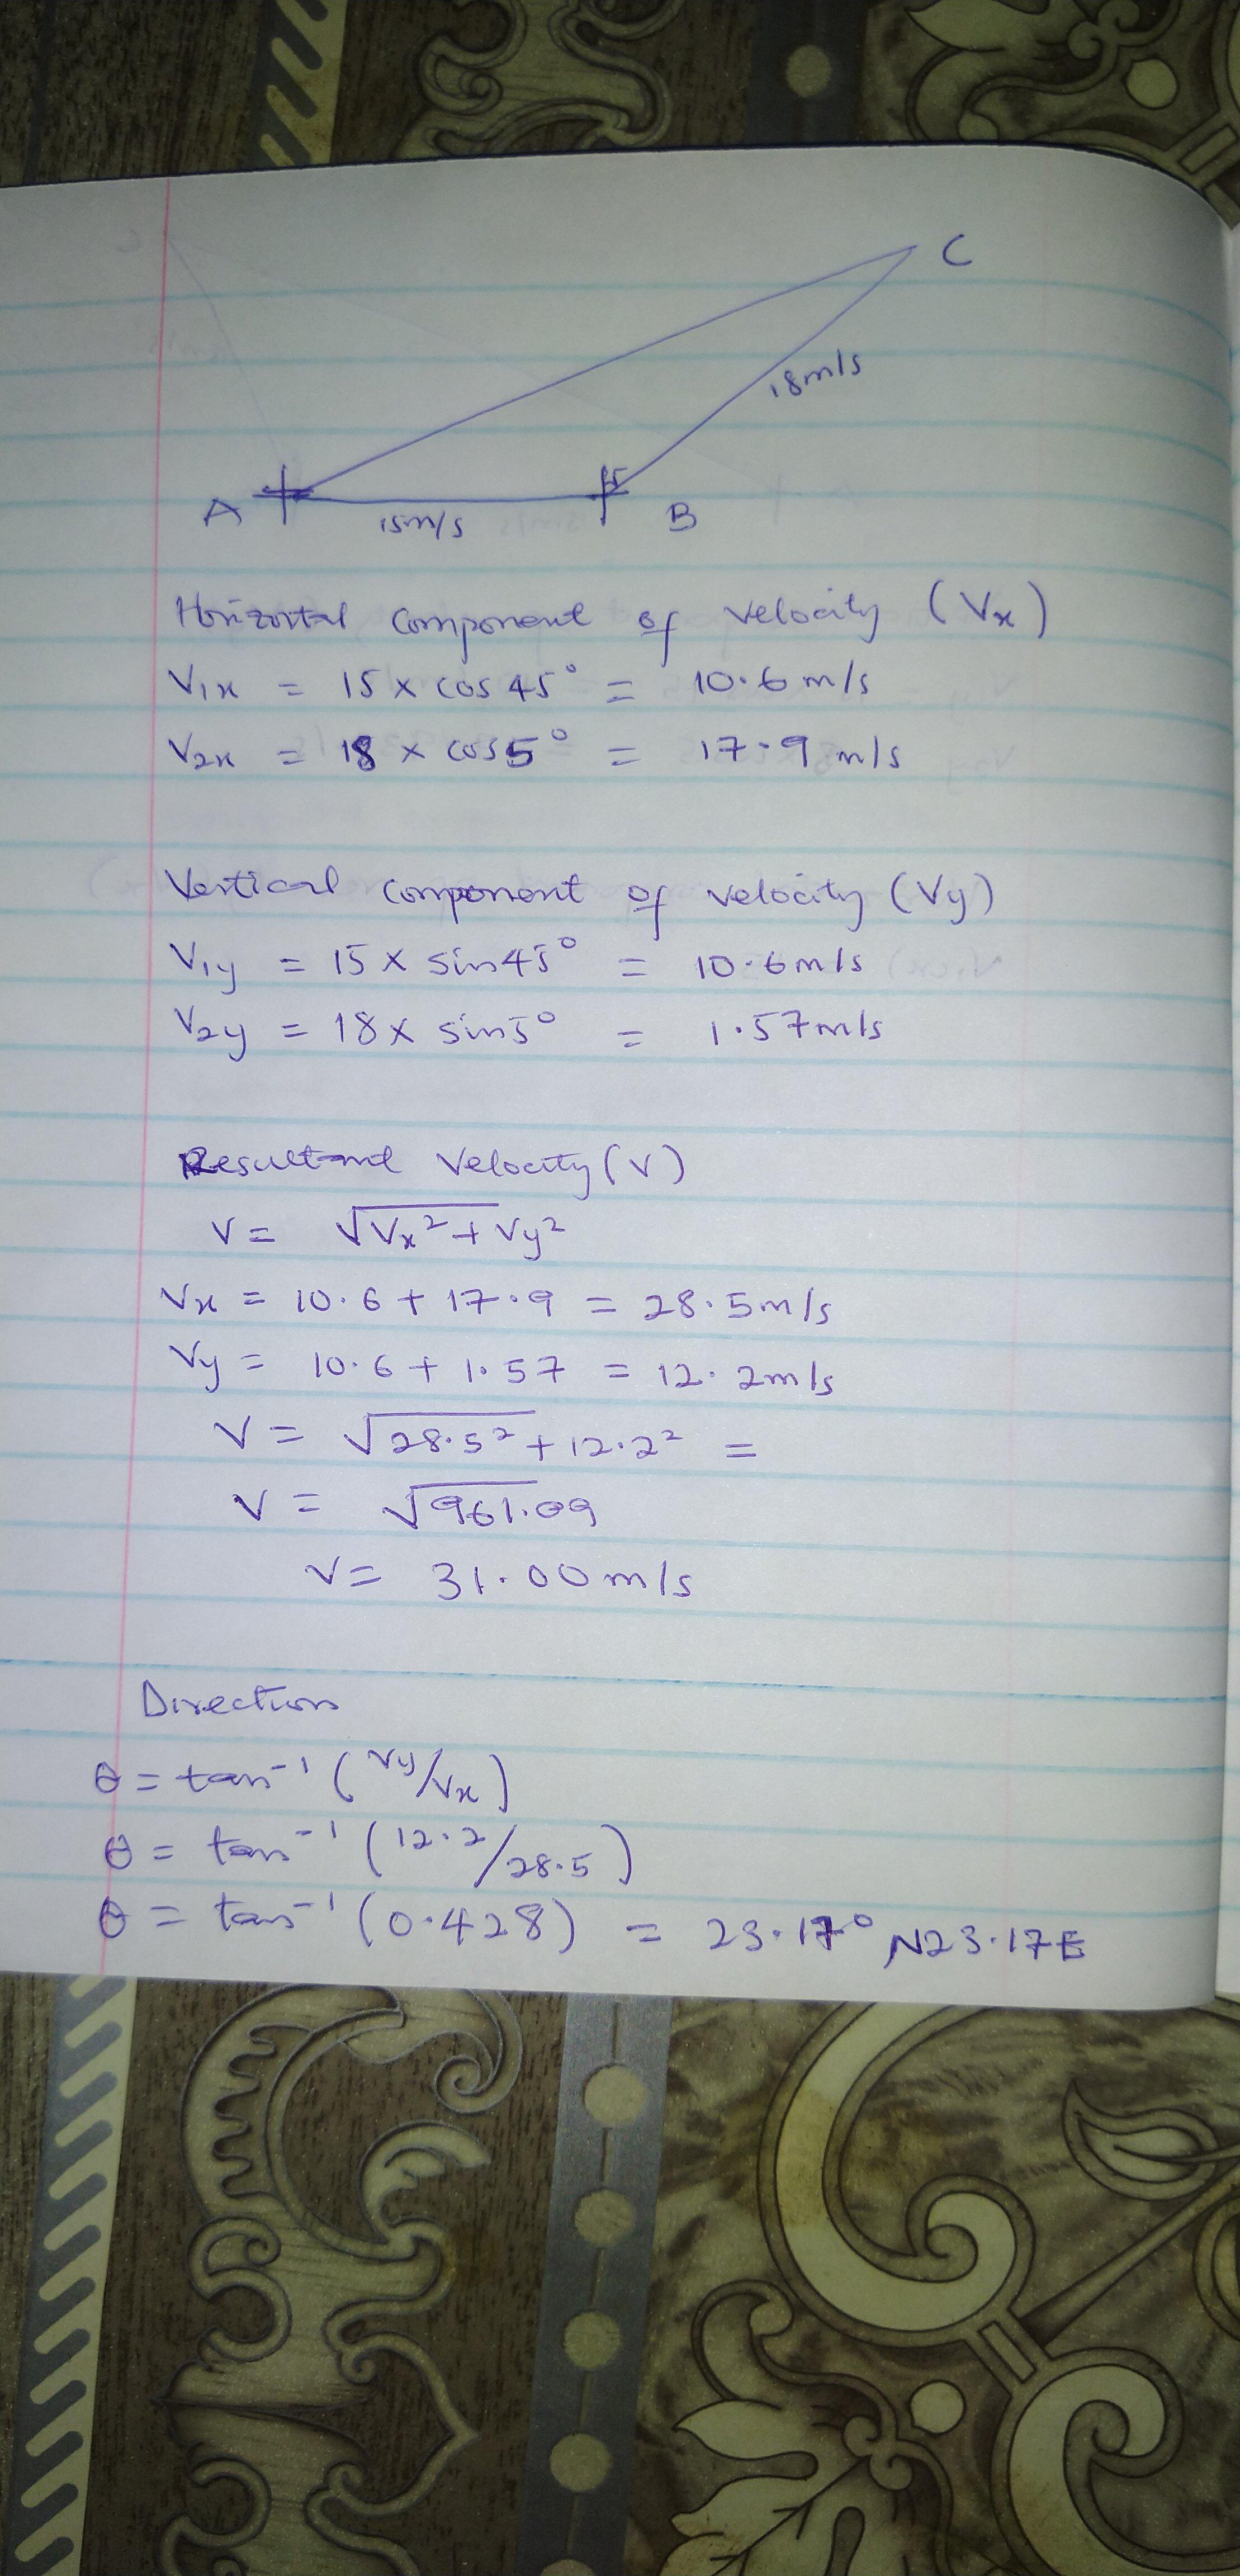 C
18m/s
A 15m/s 5 B
Horizontal component of velocity (Vx)
V1x = 15 x cos 45° = 10.6 m/s
V2x = 18 x cos5° = 17.9 m/s
Vertical component of velocity (Vy)
V1y = 15 x sin45° = 10.6m/s
V2y = 18 x sin5° = 1.57m/s
Resultant velocity (V)
V = √Vx² + Vy²
Vx = 10.6 + 17.9 = 28.5m/s
Vy = 10.6 + 1.57 = 12.2m/s
V = √28.5² + 12.2² =
V = √961.09
V = 31.00m/s
Direction
θ = tan⁻¹ (Vy/Vx)
θ = tan⁻¹ (12.2/28.5)
θ = tan⁻¹ (0.428) = 23.17° N23.17E